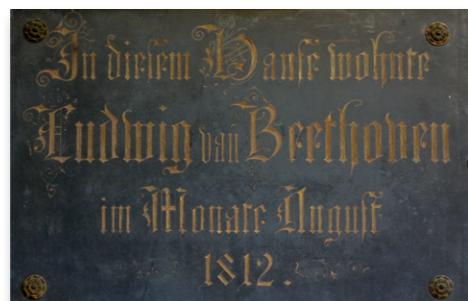 In diesem Hause wohnte
Ludwig van Beethoven
im Monate August
1812.